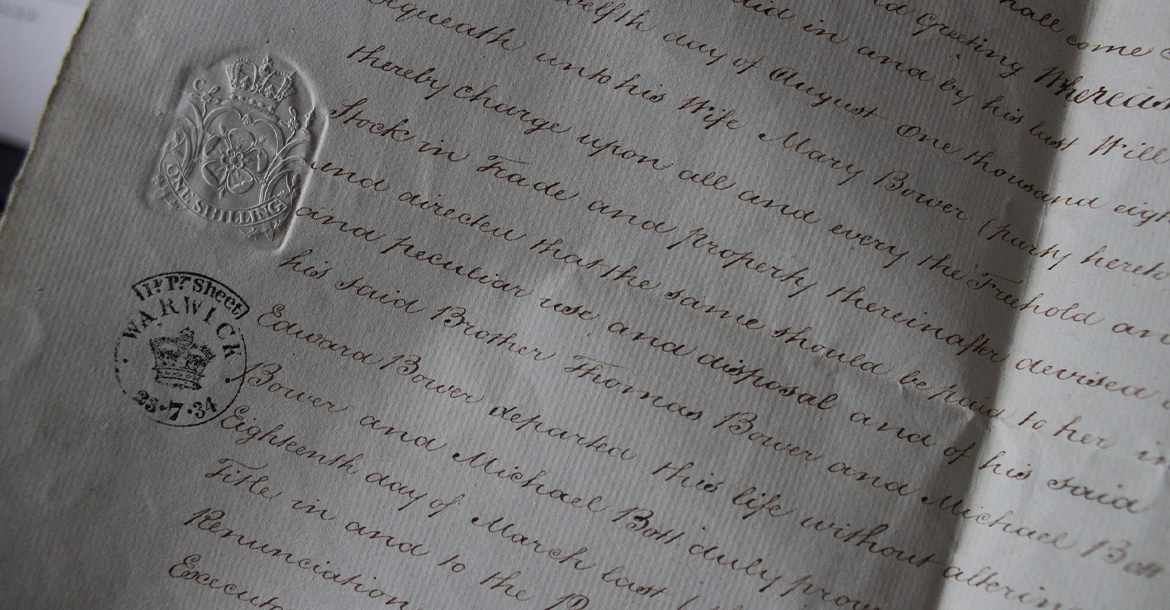 hall come
Greeting Whereas
did in and by his last Will
day of August One thousand eigh
queath unto his Wife Mary Bower (party hereto
thereby charge upon all and every the Freehold an
Stock in Trade and property thereinafter devised
and directed that the same should be paid to her in
and peculiar use and disposal and of his said
his said Brother Thomas Bower and Michael Bott
Edward Bower departed this life without altering
Bower and Michael Bott duly prov
Eighteenth day of March last
Title in and to the
Renunciation
Executo
ONE SHILLING
Sheet
WARWICK
23·7·34